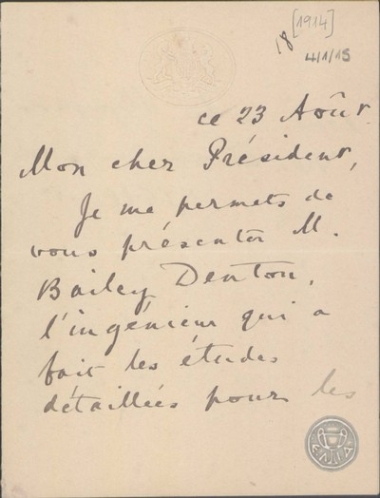 [1914]
18
4/1/15
ce 23 Août.
Mon cher Président,
Je me permets de
vous présenter M.
Bailey Denton,
l'ingénieur qui a
fait les études
détaillées pour les